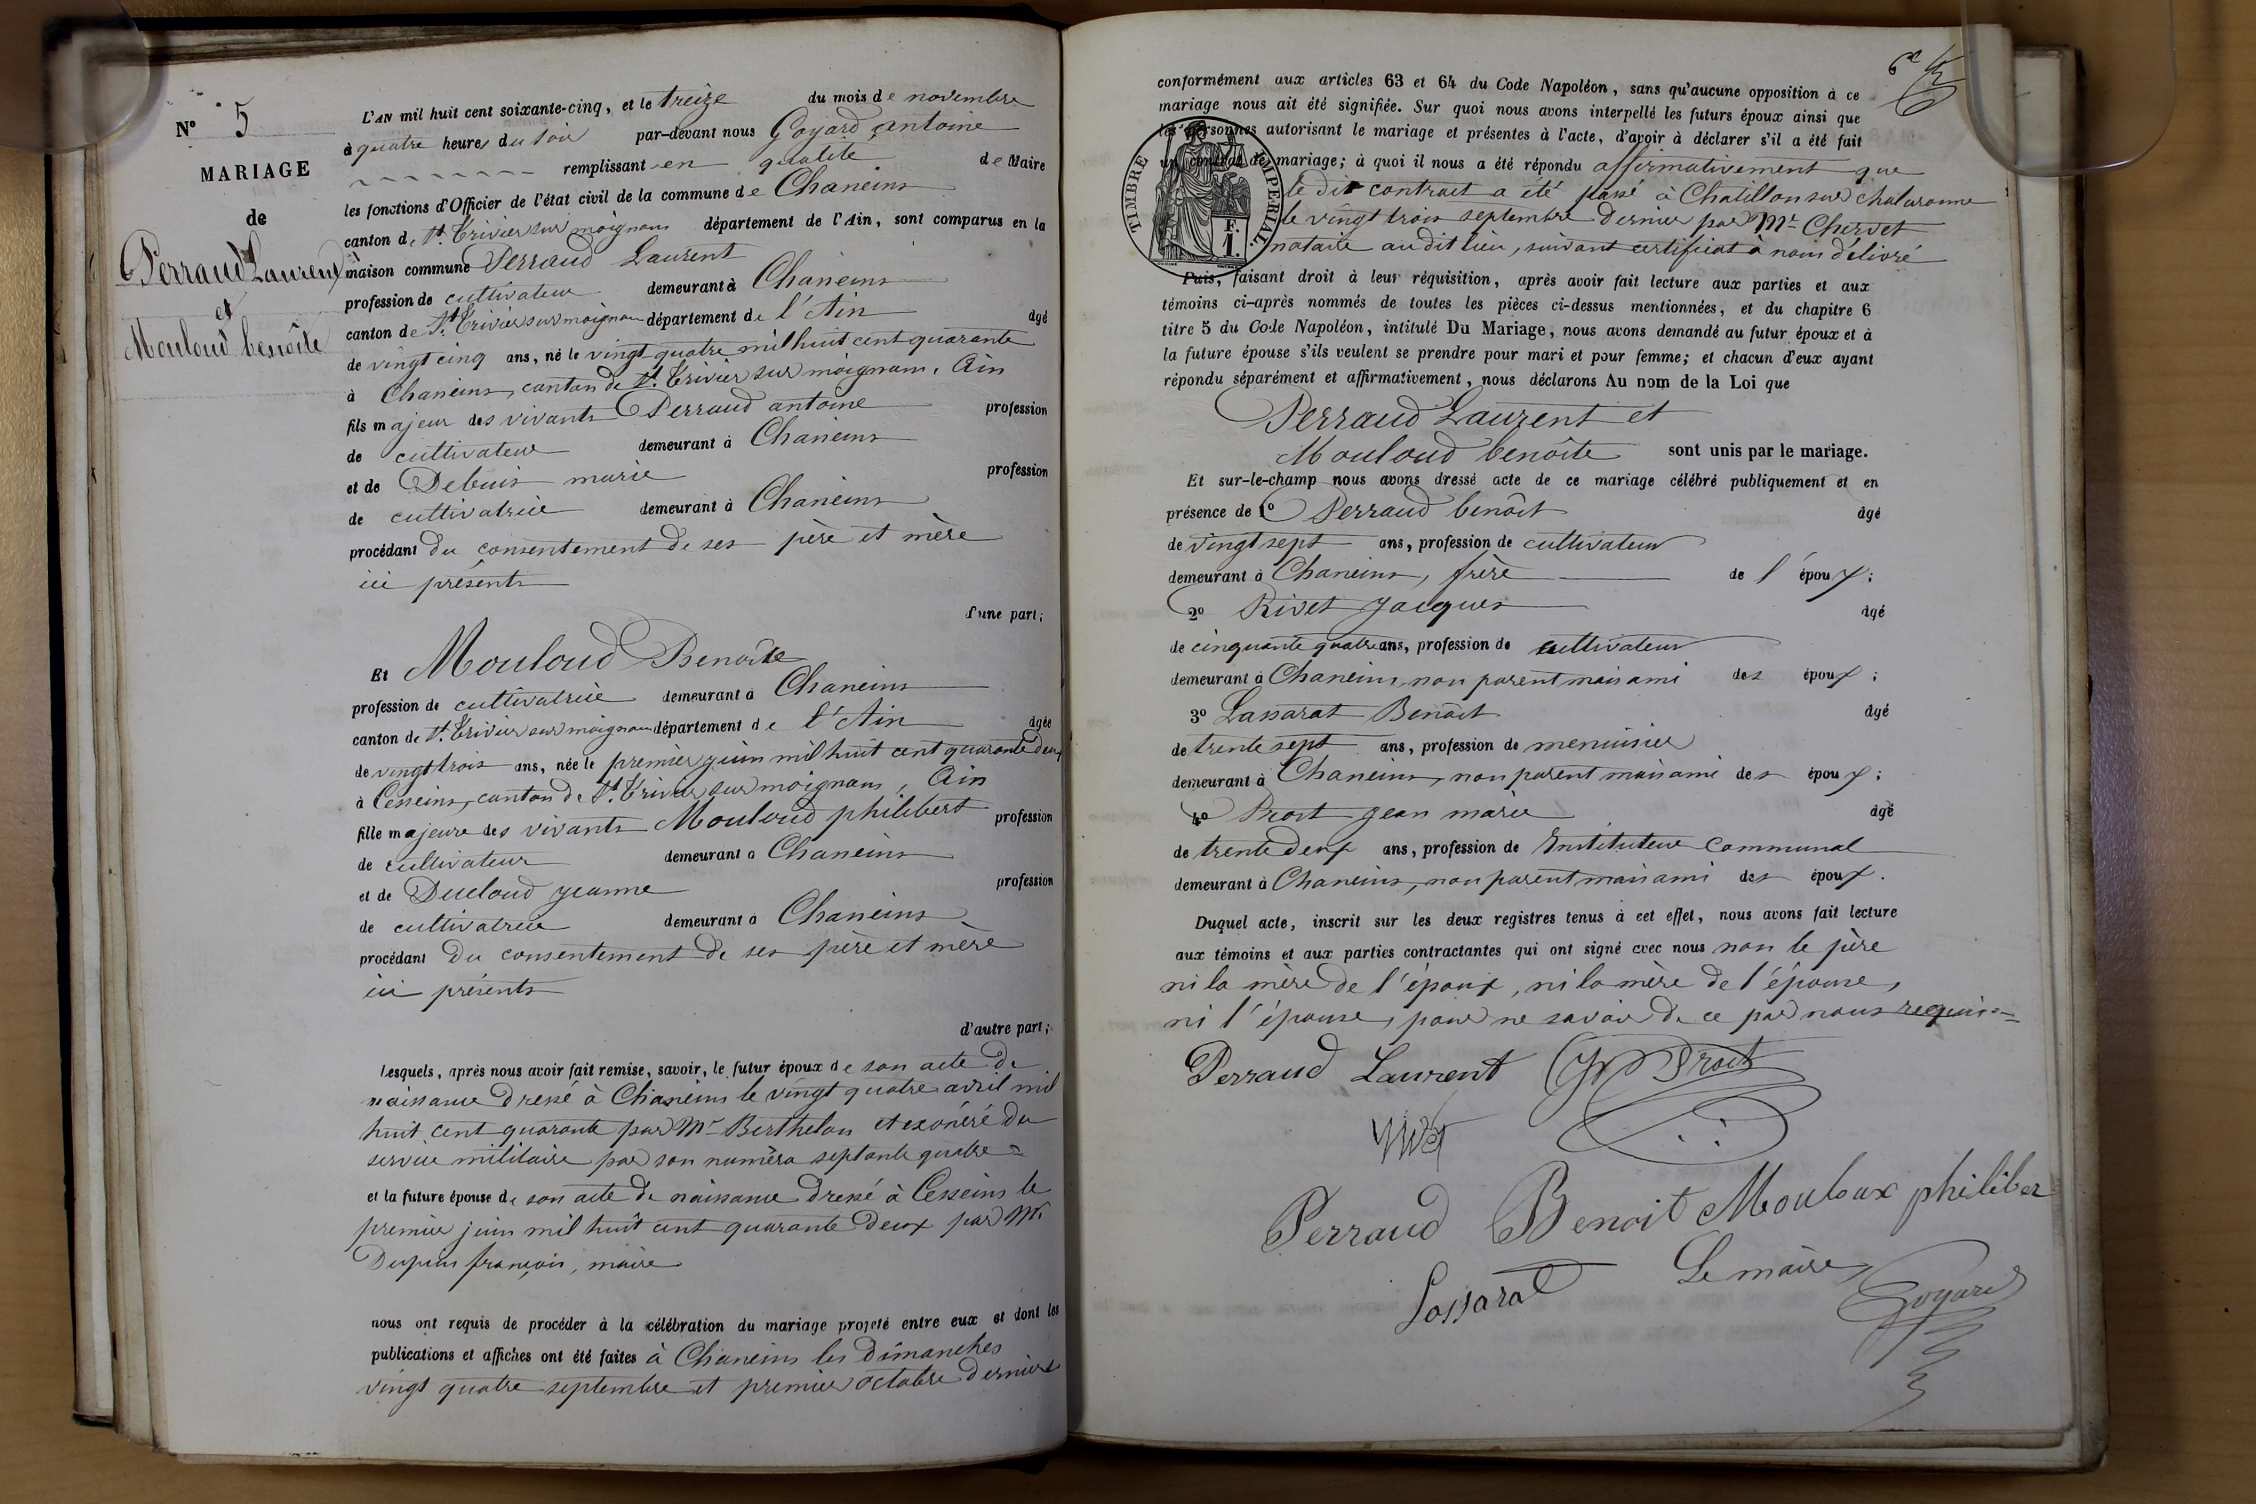 N° 5
MARIAGE
de
Perraud Laurent
et
Mouloud benoîte
L'AN mil huit cent soixante-cinq, et le treize du mois de novembre
à quatre heures du soir par-devant nous Goyard antoine
remplissant en qualité de Maire
les fonctions d'Officier de l'état civil de la commune de Chaneins
canton de St. Trivier sur moignans département de l'Ain, sont comparus en la
maison commune Perraud Laurent
profession de cultivateur demeurant à Chaneins
canton de St. Trivier sur moignans département de l'Ain âgé
de vingt cinq ans, né le vingt quatre mil huit cent quarante
à Chaneins, canton de St. Trivier sur moignans, Ain
fils majeur des vivants Perraud antoine profession
de cultivateur demeurant à Chaneins
et de Debuis marie profession
de cultivatrice demeurant à Chaneins
procédant du consentement de ses père et mère
ici présents
d'une part;
Et Mouloud Benoîte
profession de cultivatrice demeurant à Chaneins
canton de St. Trivier sur moignans département de l'Ain âgée
de vingt trois ans, née le premier juin mil huit cent quarante deux
à Cesseins, canton de St. Trivier sur moignans, Ain
fille majeure des vivants Mouloud philibert profession
de cultivateur demeurant à Chaneins
et de Ducloud jeanne profession
de cultivatrice demeurant à Chaneins
procédant du consentement de ses père et mère
ici présents
d'autre part;
Lesquels, après nous avoir fait remise, savoir, le futur époux de son acte de
naissance dressé à Chaneins le vingt quatre avril mil
huit cent quarante par Mr Berthelon et exonéré du
service militaire par son numéro septante quatre
et la future épouse de son acte de naissance dressé à Cesseins le
premier juin mil huit cent quarante deux par Mr
Dupuis françois, maire
nous ont requis de procéder à la célébration du mariage projeté entre eux et dont les
publications et affiches ont été faites à Chaneins les Dimanches
vingt quatre septembre et premier octobre derniers
6e
conformément aux articles 63 et 64 du Code Napoléon, sans qu'aucune opposition à ce
mariage nous ait été signifiée. Sur quoi nous avons interpellé les futurs époux ainsi que
les personnes autorisant le mariage et présentes à l'acte, d'avoir à déclarer s'il a été fait
un contrat de mariage; à quoi il nous a été répondu affirmativement que
le dit contrat a été passé à Chatillon sur chalaronne
le vingt trois septembre dernier par Mr Chervet
notaire audit lieu, suivant certificat à nous délivré
TIMBRE IMPERIAL
F.
1.
Puis, faisant droit à leur réquisition, après avoir fait lecture aux parties et aux
témoins ci-après nommés de toutes les pièces ci-dessus mentionnées, et du chapitre 6
titre 5 du Code Napoléon, intitulé Du Mariage, nous avons demandé au futur époux et à
la future épouse s'ils veulent se prendre pour mari et pour femme; et chacun d'eux ayant
répondu séparément et affirmativement, nous déclarons Au nom de la Loi que
Perraud Laurent et
Mouloud benoîte sont unis par le mariage.
Et sur-le-champ nous avons dressé acte de ce mariage célébré publiquement et en
présence de 1° Perraud benoît âgé
de vingt sept ans, profession de cultivateur
demeurant à Chaneins, frère de l'époux;
2° Rivet Jacques âgé
de cinquante quatre ans, profession de cultivateur
demeurant à Chaneins, non parent mais ami des époux;
3° Lassarat Benoît âgé
de trente sept ans, profession de menuisier
demeurant à Chaneins, non parent mais ami des époux;
4° Prost jean marie âgé
de trente deux ans, profession de Instituteur communal
demeurant à Chaneins, non parent mais ami des époux.
Duquel acte, inscrit sur les deux registres tenus à cet effet, nous avons fait lecture
aux témoins et aux parties contractantes qui ont signé avec nous non le père
ni la mère de l'époux, ni la mère de l'épouse,
ni l'épouse, pour ne savoir de ce par nous requis
Perraud Laurent Prost
Rivet
Perraud Benoit Mouloux philiber
Le maire,
Lassarat Goyard